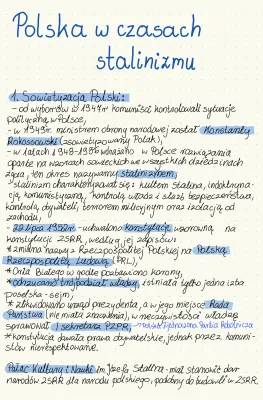 Polska w czasach
stalinizmu
1. Sowietyzacja Polski:
- od wyborów w 1947r komuniści kontrolowali sytuację
polityczną w Polsce,
- w 1949r. ministrem obrony narodowej został Konstanty
Rokossowski (zsowietyzowany Polak),
- w latach 1948-1956 wdrażano w Polsce rozwiązania
oparte na wzorcach sowieckich we wszystkich dziedzinach
życia, ten okres nazywamy stalinizmem,
- stalinizm charakteryzował się: kultem Stalina, indoktryna-
cją komunistyczną, kontrolą władz i służb bezpieczeństwa,
kontrolą obywateli, terrorem milicyjnym oraz izolacją od
zachodu,
- 22 lipca 1952r - uchwalono Konstytucję wzorowaną na
konstytucji ZSRR, według jej zapisów:
* zmiana nazwy z Rzeczpospolitej Polskiej na Polską
Rzeczpospolitą Ludową (PRL),
* Orła Białego w godle pozbawiono korony,
* odrzucano trójpodział władzy, istniała tylko jedna izba
poselska - sejm,
* zlikwidowano urząd prezydenta, a w jego miejsce Rada
Państwa (nie miała znaczenia), w rzeczywistości władzę
sprawował I sekretarz PZPR, → Polska Zjednoczona Partia Robotnicza
* konstytucja dawała prawa obywatelskie, jednak przez komuni-
stów nierespektowane.
Pałac Kultury i Nauki im Józefa Stalina - miał stanowić dar
narodów ZSRR dla narodu polskiego, podobny do budowli w ZSRR.